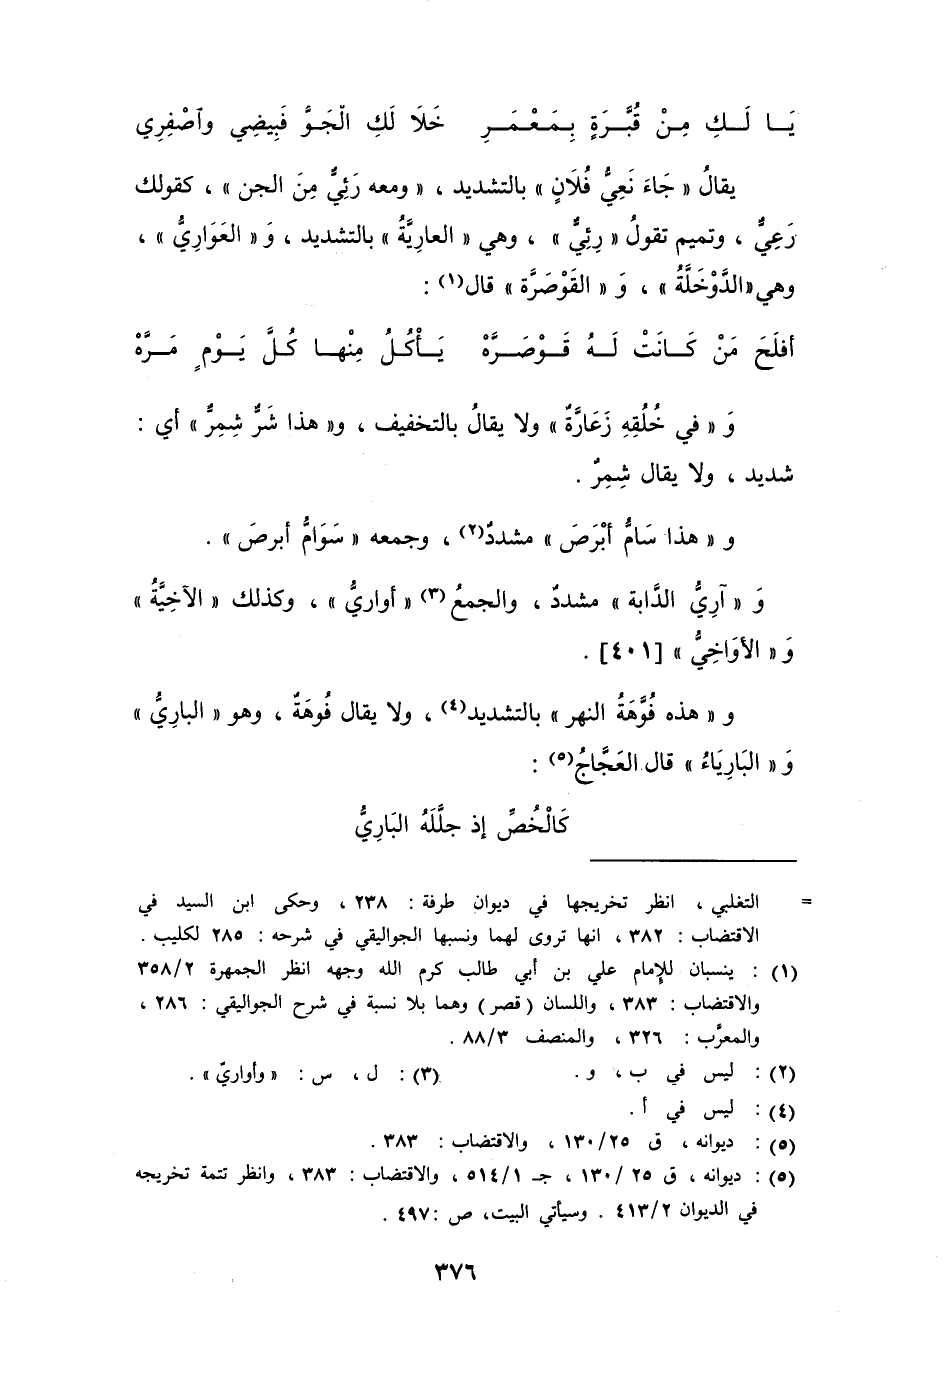 يَـا لَـكِ مِـنْ قُبَّـرَةٍ بِـمَـعْـمَـرِ خَلَا لَكِ الْجَـوُّ فَبِيضِي وٱصْفِرِي
يقالُ « جَاءَ نَعِيُّ فُلَانٍ » بالتشديد ، « ومعه رَئِيٌّ مِنَ الجن » ، كقولك
رَعِيٌّ ، وتميم تقولُ « رِئِيٌّ » ، وهي « العاريَّةُ » بالتشديد ، وَ « العَوَارِيُّ » ،
وهي «الدَّوْخَلَّةُ » ، وَ « القَوْصَرَّة » قال(١) :
أفلَحَ مَنْ كَـانَتْ لَـهُ قَـوْصَـرَّهْ يَـأْكُـلُ مِنْهـا كُـلَّ يَـوْمٍ مَـرَّهْ
وَ « في خُلُقِهِ زَعَارَّةٌ » ولا يقالُ بالتخفيف ، و« هذا شَرٌّ شِمِرٌّ » أي :
شديد ، ولا يقال شِمِرٌ .
و « هذا سَامُّ أبْرَصَ » مشددٌ(٢) ، وجمعه « سَوَامُّ أبرصَ » .
وَ « آرِيُّ الدَّابة » مشددٌ ، والجمعُ (٣) « أواريُّ » ، وكذلك « الآخِيَّةُ »
وَ « الأوَاخِيُّ » [٤٠١] .
و « هذه فُوَّهَةُ النهر » بالتشديد(٤) ، ولا يقال فُوهَةٌ ، وهو « البارِيُّ »
وَ « البَارِيَاءُ » قال العَجَّاجُ(٥) :
كَالْخُصِّ إذ جلَّلَهُ البَارِيُّ
= التغلبي ، انظر تخريجها في ديوان طرفة : ٢٣٨ ، وحكى ابن السيد في
الاقتضاب : ٣٨٢ ، انها تروى لهما ونسبها الجواليقي في شرحه : ٢٨٥ لكليب .
(١) : ينسبان للإمام علي بن أبي طالب كرم الله وجهه انظر الجمهرة ٣٥٨/٢
والاقتضاب : ٣٨٣ ، واللسان ( قصر ) وهما بلا نسبة في شرح الجواليقي : ٢٨٦ ،
والمعرَّب : ٣٢٦ ، والمنصف ٨٨/٣ .
(٢) : ليس في ب ، و . (٣) : ل ، س : « وأواريّ » .
(٤) : ليس في أ .
(٥) : ديوانه ، ق ١٣٠/٢٥ ، والاقتضاب : ٣٨٣ .
(٥) : ديوانه ، ق ٢٥ /١٣٠ ، جـ ٥١٤/١ ، والاقتضاب : ٣٨٣ ، وانظر تتمة تخريجه
في الديوان ٤١٣/٢ . وسيأتي البيت، ص :٤٩٧ .
٣٧٦